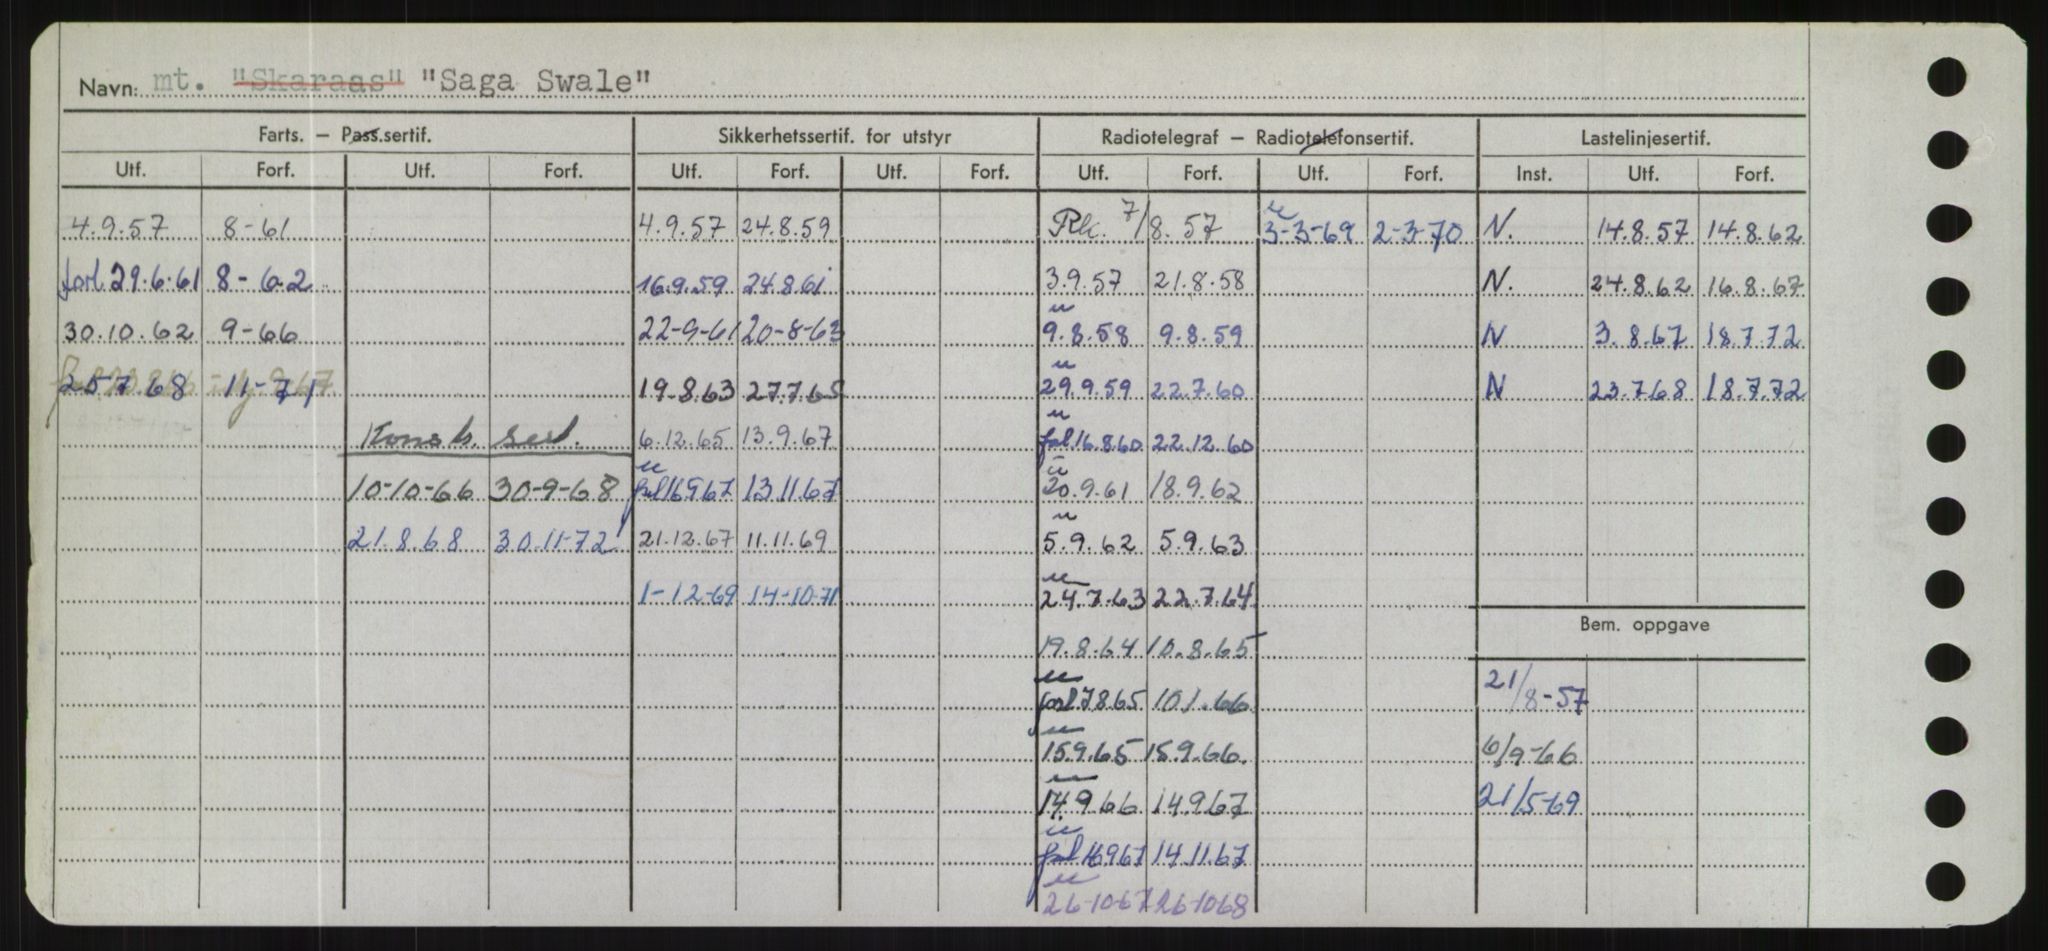 Navn: mt. "Skaraas" "Saga Swale"
Farts. — Pass.sertif. Sikkerhetssertif. for utstyr Radiotelegraf — Radiotelefonsertif. Lastelinjesertif.
Utf. Forf. Utf. Forf. Utf. Forf. Utf. Forf. Utf. Forf. Utf. Forf. Inst. Utf. Forf.
4.9.57 8-61 4.9.57 24.8.59 7/8.57 3-3-69 2-3-70 N. 14.8.57 14.8.62
forl. 29.6.61 8-62 16.9.59 24.8.61 3.9.57 21.8.58 N. 24.8.62 16.8.67
30.10.62 9-66 22-9-61 20-8-63 9.8.58 9.8.59 N 3.8.67 18.7.72
25.7.68 11-71 19.8.63 27.7.65 29.9.59 22.7.60 N 23.7.68 18.7.72
Konstr. sert. 6.12.65 13.9.67 16.8.60 22.12.60
10-10-66 30-9-68 16967 13.11.67 20.9.61 18.9.62
21.8.68 30.11-72 21.12.67 11.11.69 5.9.62 5.9.63
1-12-69 14-10-71 24.7.63 22.7.64
Bem. oppgave
19.8.64 10.8.65
forl 7865 10.1.66 21/8-57
15.9.65 15.9.66 6/9-66
14.9.66 14.9.67 21/5-69
16967 14.11.67
26-10-67 26-10-68